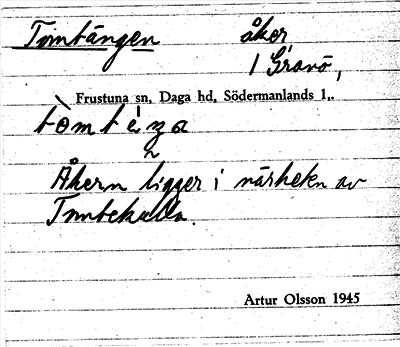 Tomtängen åker
1 Granö,
Frustuna sn, Daga hd, Södermanlands l,.
Åkern ligger i närheten av
Tomtekulla.
Artur Olsson 1945